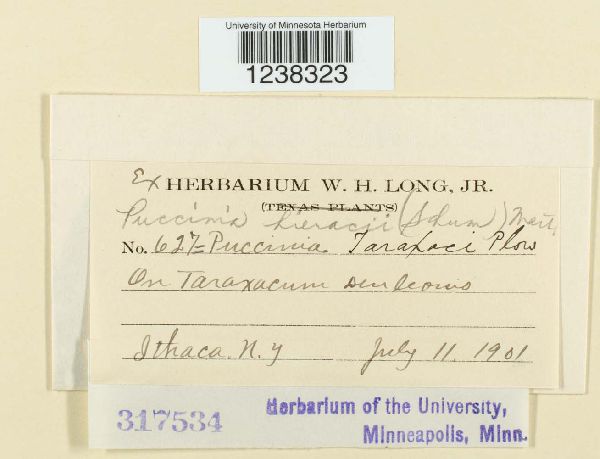 University of Minnesota Herbarium
1238323
Ex HERBARIUM W. H. LONG, JR.
(TEXAS PLANTS)
Puccinia hieracii (Schum) Mart.
No. 627=Puccinia Taraxaci Plow
On Taraxacum densleonis
Ithaca. N. Y July 11. 1901
317534
Herbarium of the University,
Minneapolis, Minn.